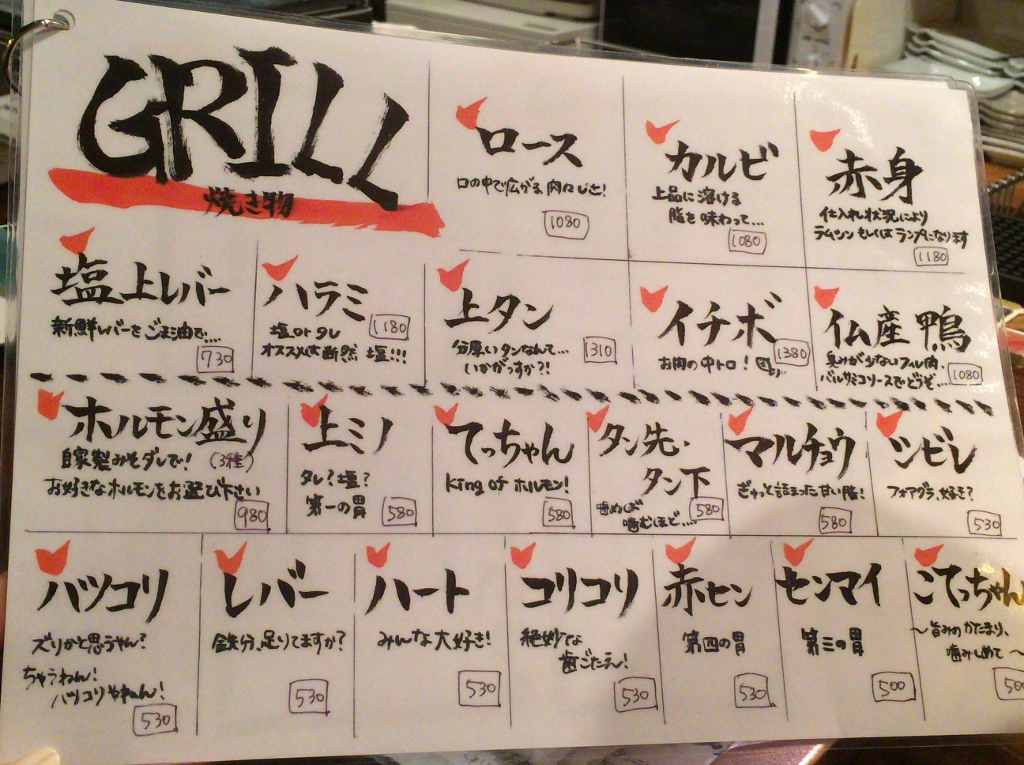 GRILL
焼き物
ロース
口の中で広がる肉々しさ!
1080
カルビ
上品に溶ける
脂を味わって...
1080
赤身
仕入れ状況により
ラムシン もしくは ランプになります
1180
塩上レバー
新鮮レバーをごま油で....
730
ハラミ
塩orタレ
オススメは断然 塩!!!
1180
上タン
分厚いタンなんて...
いかがっすか?!
1310
イチボ
お肉の中トロ!
1380
仏産鴨
臭みが少ないフル肉、
バルサミコソースでどうぞ...
1080
ホルモン盛り
自家製みそダレで! (3種)
お好きなホルモンをお選び下さい
980
上ミノ
タレ?塩?
第一の胃
580
てっちゃん
King of ホルモン!
580
タン先・
タン下
噛めば
噛むほど...
580
マルチョウ
ぎゅっと詰まった甘い脂!
580
シビレ
フォアグラ、好き?
530
ハツコリ
ズリかと思うやん?
ちゃうねん!
ハツコリやねん!
530
レバー
鉄分、足りてますか?
530
ハート
みんな大好き!
530
コリコリ
絶妙な
歯ごたえ!
530
赤セン
第四の胃
530
センマイ
第三の胃
500
こてっちゃん
〜旨みのかたまり、
噛みしめて〜